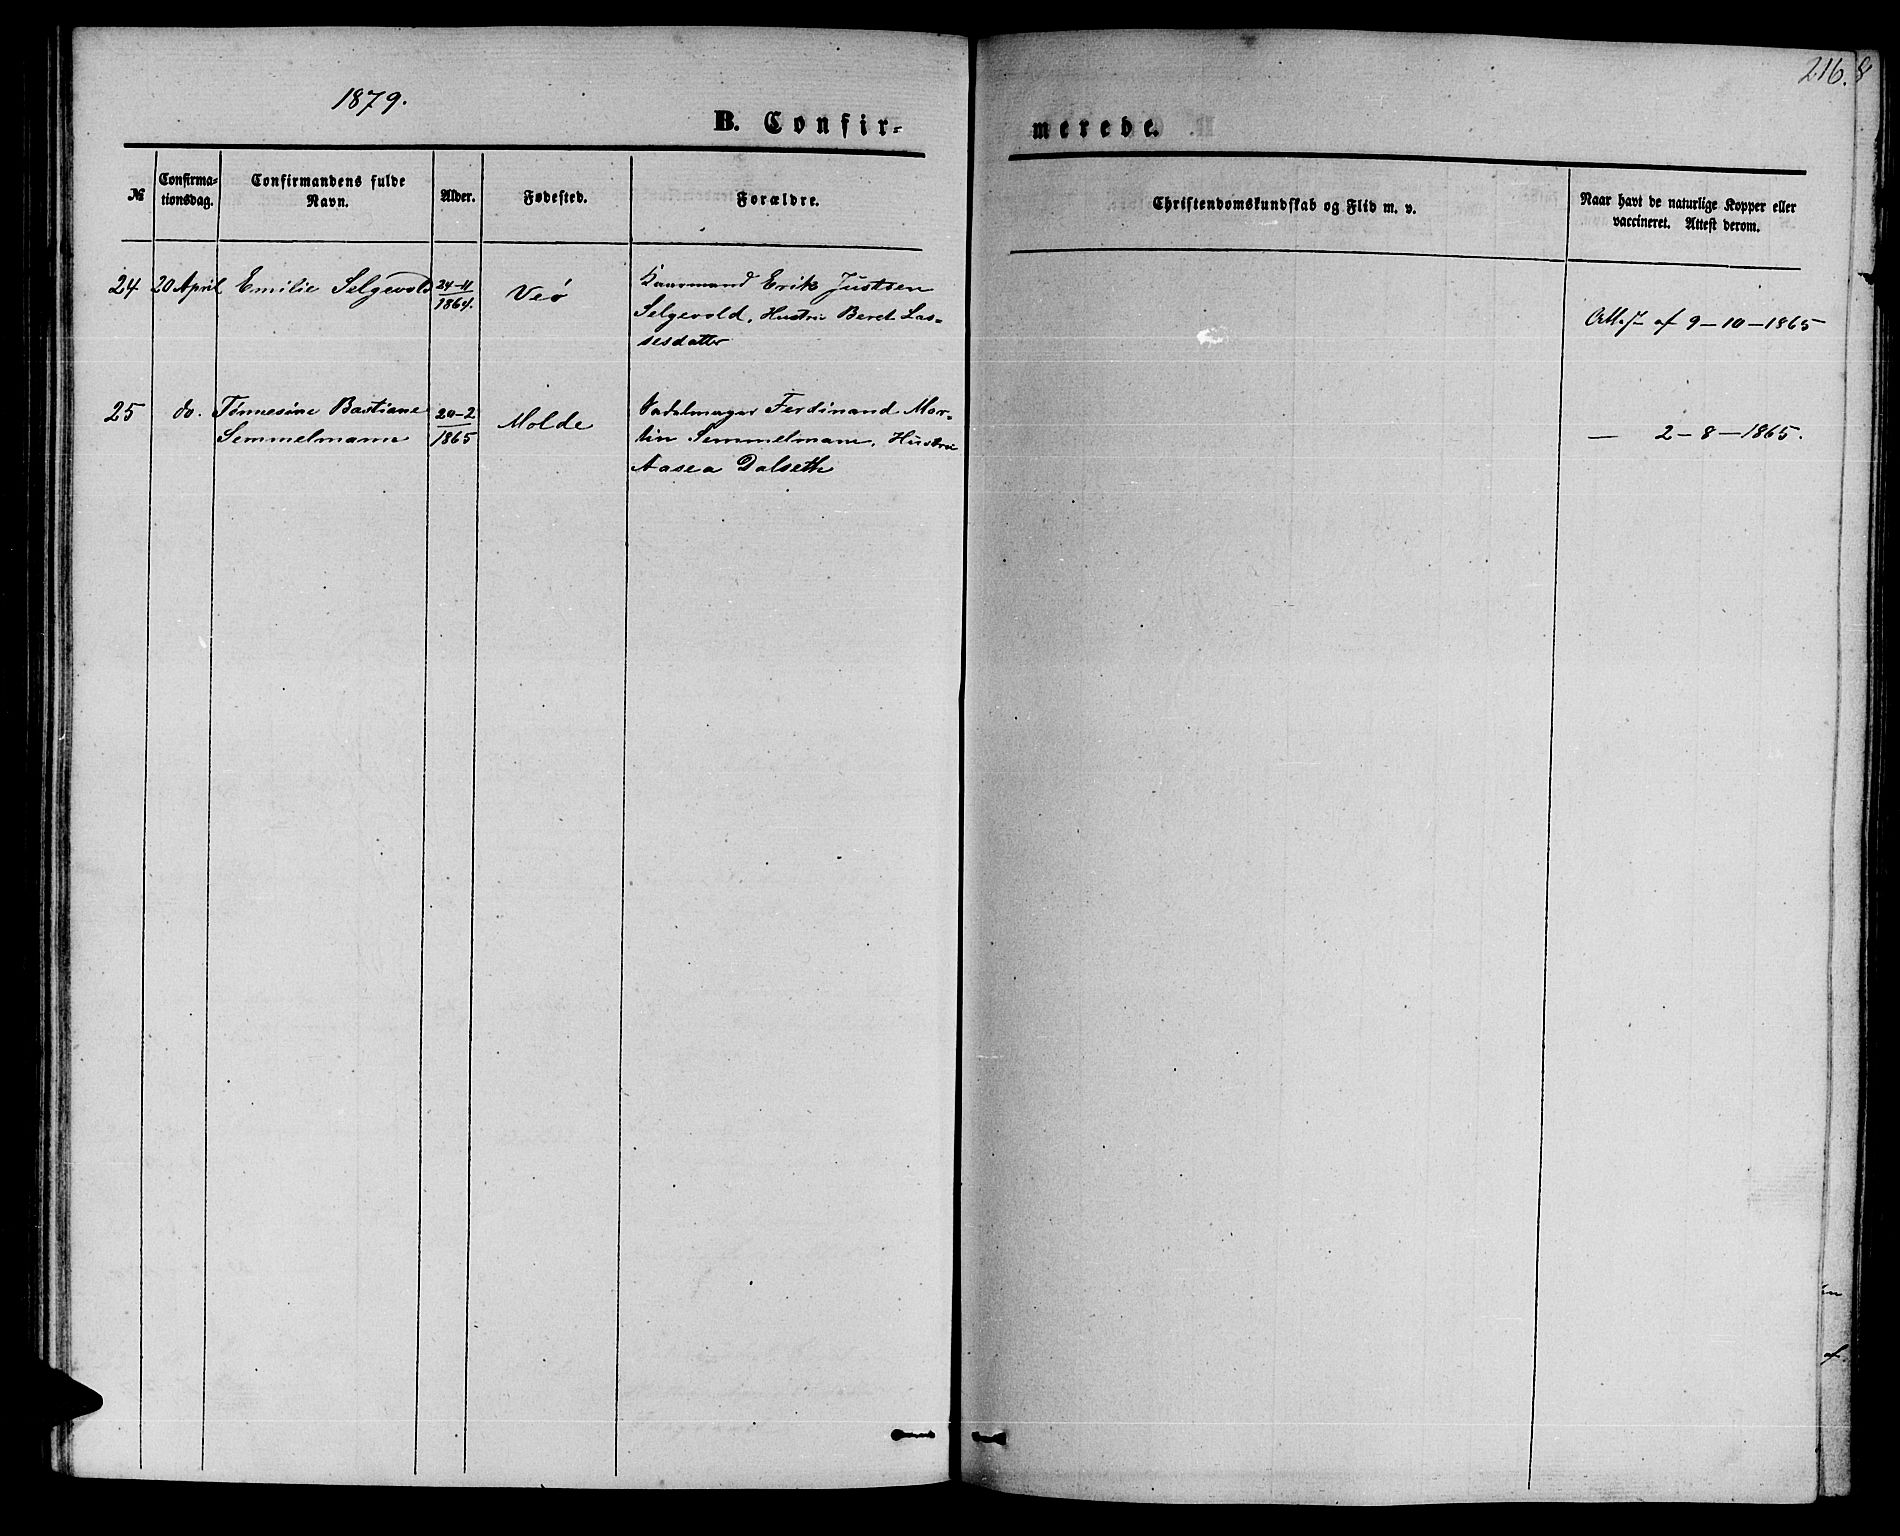 1879.
216. 8
B. Confir-
merede.
№
Confirma-
tionsdag.
Confirmandens fulde
Navn.
Alder.
Fødested.
Forældre.
Christendomskundskab og Flid m. v.
Naar havt de naturlige Kopper eller
vaccineret. Attest derom.
24 20 April Emilie Selgevold 24-11 1864. Veø Kaarmand Erik Justsen
Selgevold, Hustru Beret Las-
sesdatter
Attest af 9-10-1865
25 do. Tønnesine Bastiane 20-2 1865 Molde Sadelmager Ferdinand Mar-
Semmelmann
tin Semmelmann, Hustru
Aasea Dalseth
— 2-8-1865.
af